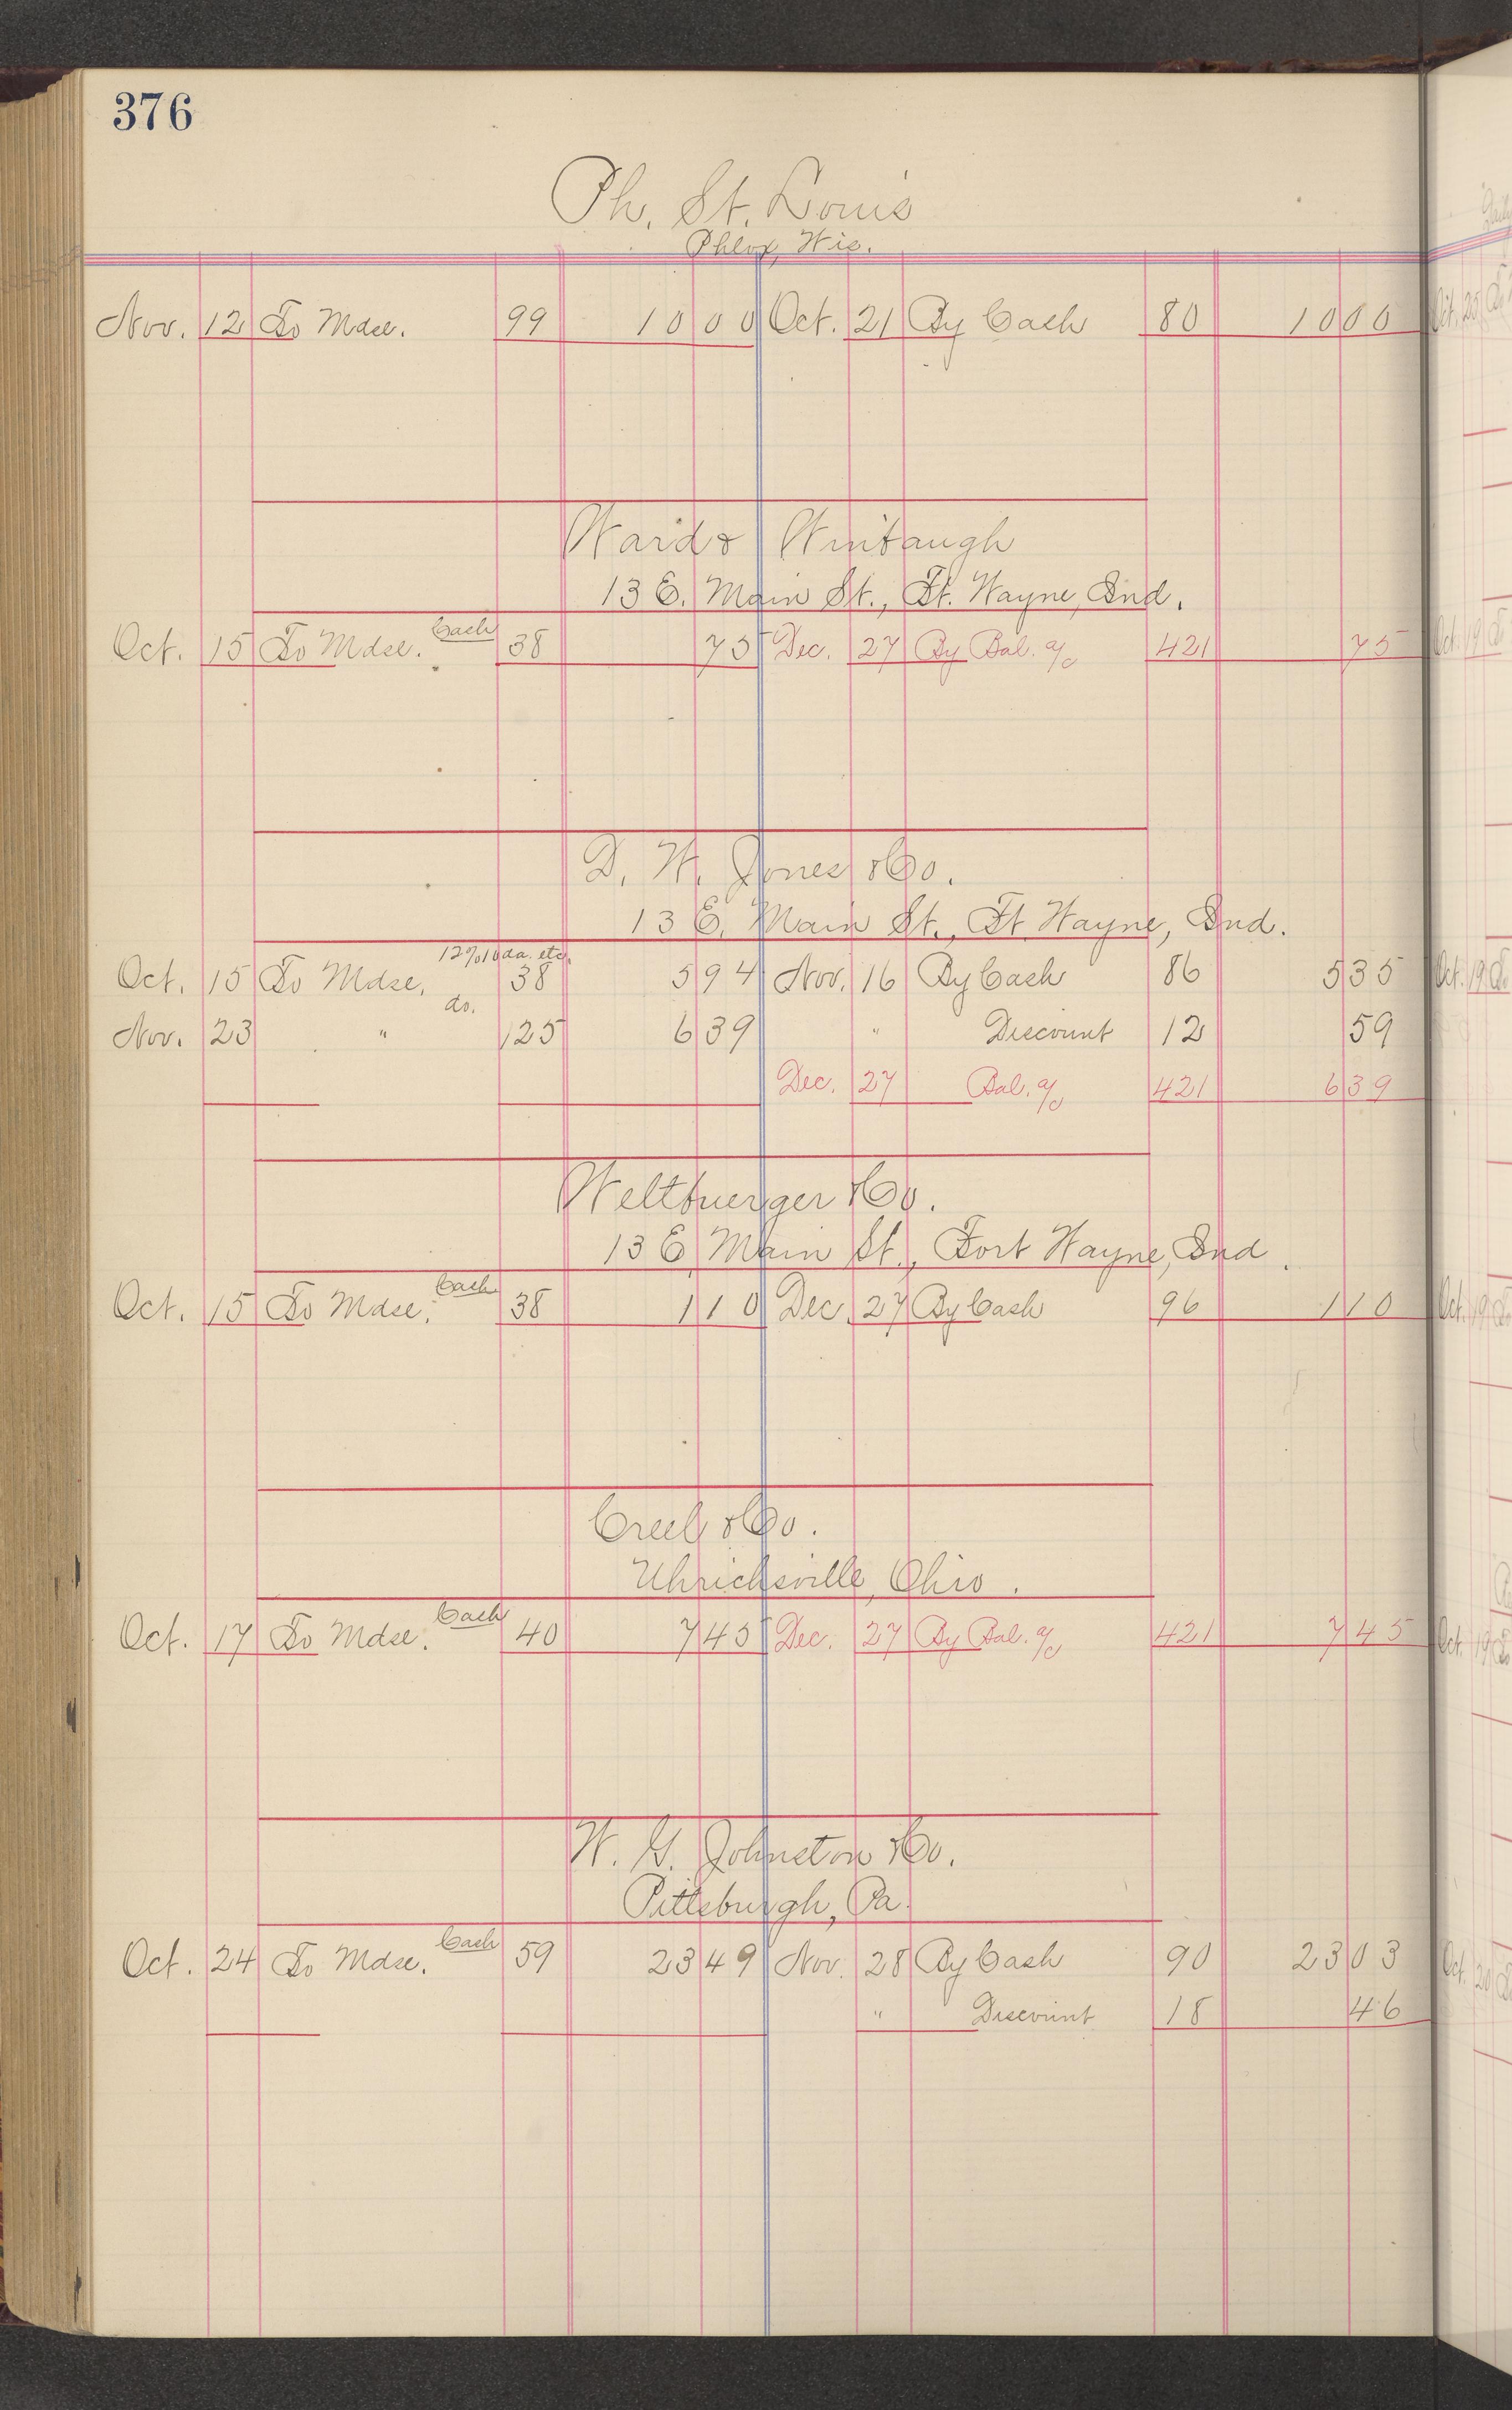 376
Ph. St. Louis
Phlox, Wis.
Nov. 12 To Mdse. 99 10 00 Oct. 21 By Cash 80 10 00
Ward &
13 E. Main St., Ft. Wayne, Ind.
Oct. 15 To Mdse. Cash 38 75 Dec. 27 By Bal. a/c 421 75
D. W. Jones & Co.
13 E. Main St., Ft. Wayne, Ind.
12%10 da. etc.
Oct. 15 To Mdse. 38 5 94 Nov. 16 By Cash 86 5 35
do.
Nov. 23 " 125 6 39 " Discount 12 59
Dec. 27 Bal. a/c 421 6 39
Weltbuerger & Co.
13 E Main St., Fort Wayne, Ind.
Oct. 15 To Mdse. Cash 38 1 10 Dec. 27 By Cash 96 1 10
Creel & Co.
Uhrichsville, Ohio.
Oct. 17 To Mdse. Cash 40 7 45 Dec. 27 By Bal. a/c 421 7 45
W. G. Johnston & Co.
Pittsburgh, Pa.
Oct. 24 To Mdse. Cash 59 23 49 Nov. 28 By Cash 90 23 03
" Discount 18 46